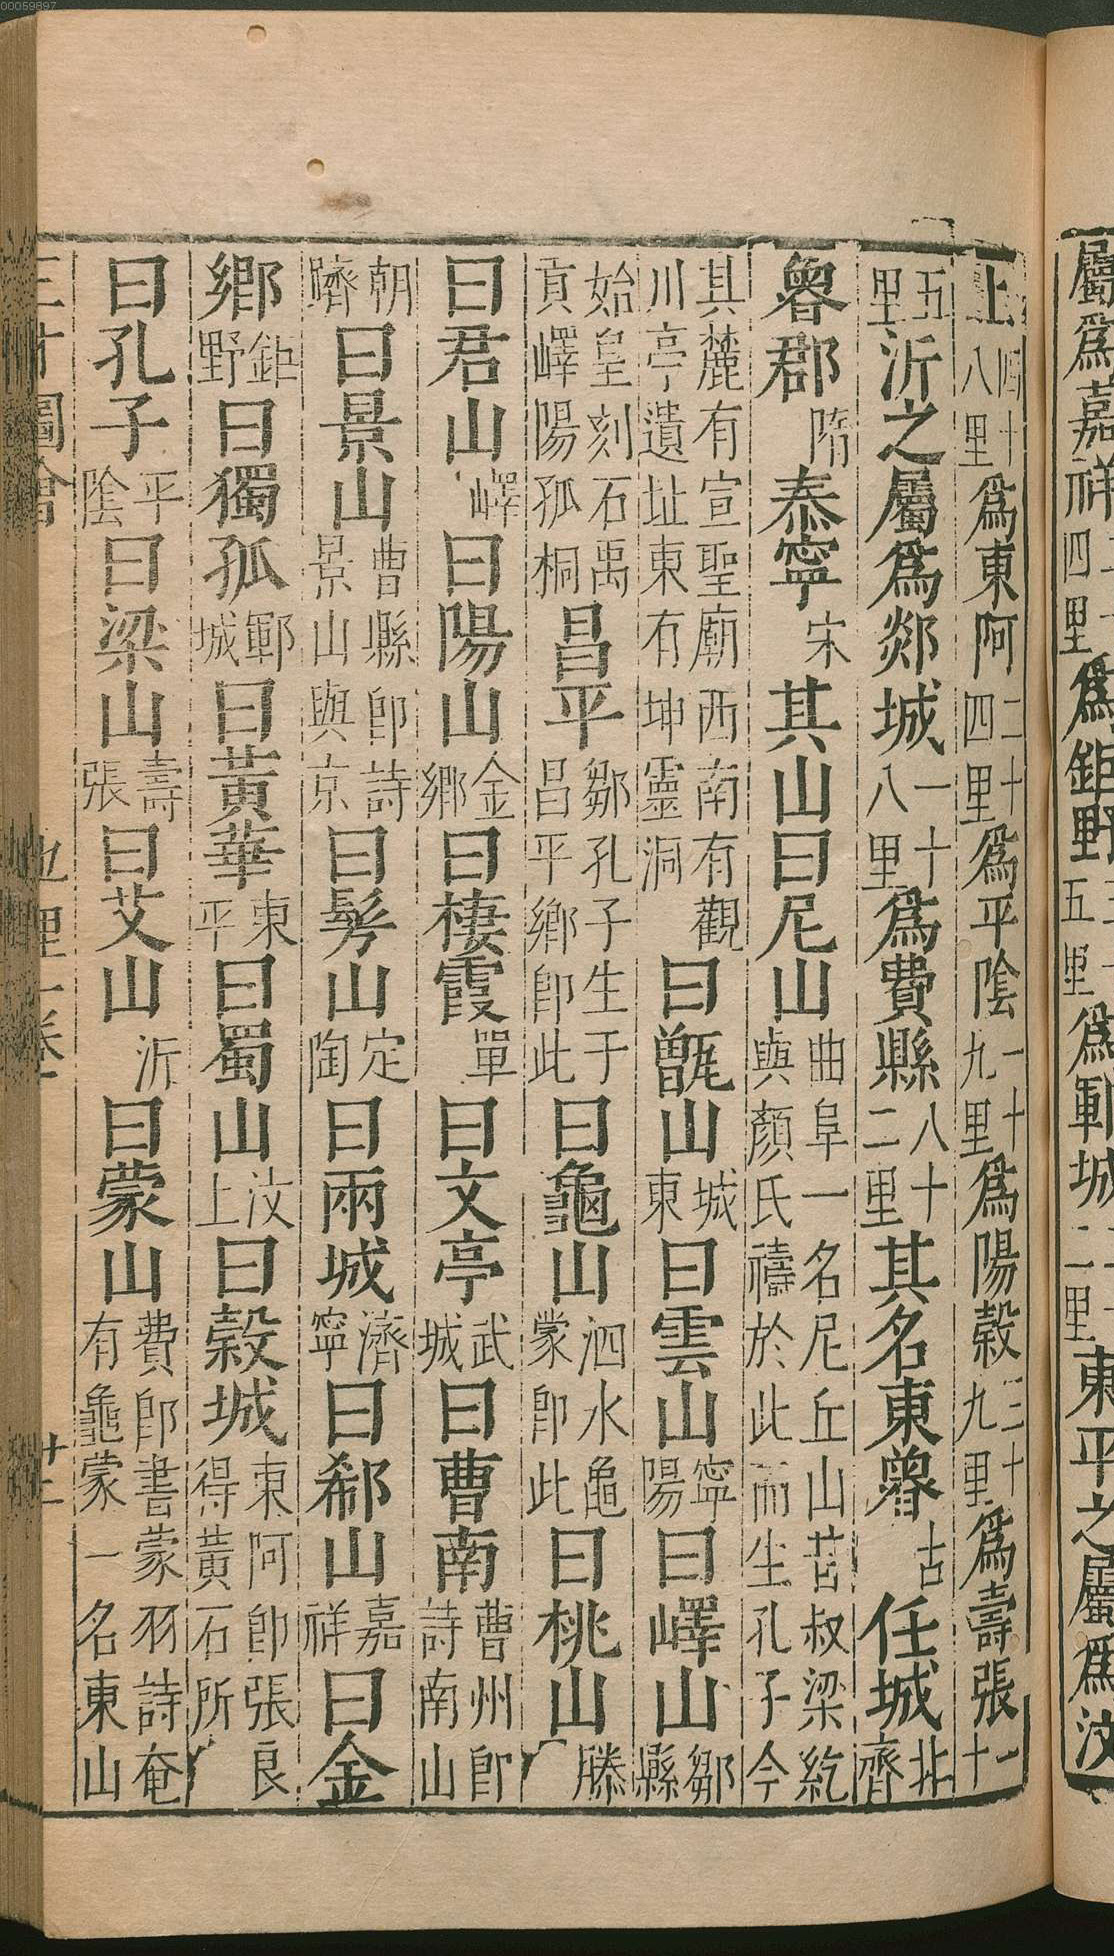 屬爲嘉祥四里爲鉅野五里爲鄆城二里東平之屬爲汶
上四十八里爲東阿二十四里爲平陰一十九里爲陽榖三十九里爲壽張一十
五里沂之屬爲郯城一十八里爲費縣八十二里其名東魯古任城北齊
魯郡隋泰寧宋其山曰尼山曲阜一名尼丘山昔叔梁紇與顏氏禱於此而生孔子今
其麓有宣聖廟西南有觀川亭遺址東有坤靈洞曰甑山城東曰雲山寧陽曰嶧山鄒縣
始皇刻石禹貢嶧陽孤桐昌平鄒孔子生于昌平鄉即此曰龜山泗水龜蒙即此曰桃山滕
曰君山嶧曰陽山金鄉曰棲霞單曰文亭武城曰曹南曹州即詩南山
朝隮曰景山曹縣即詩景山與京曰髣山定陶曰兩城濟寧曰郗山嘉祥曰金
鄉鉅野曰獨孤鄆城曰黃華東平曰蜀山汶上曰榖城東阿即張良得黃石所
曰孔子平陰曰梁山壽張曰艾山沂曰蒙山費即書蒙羽詩奄有龜蒙一名東山
三才圖會
00059897